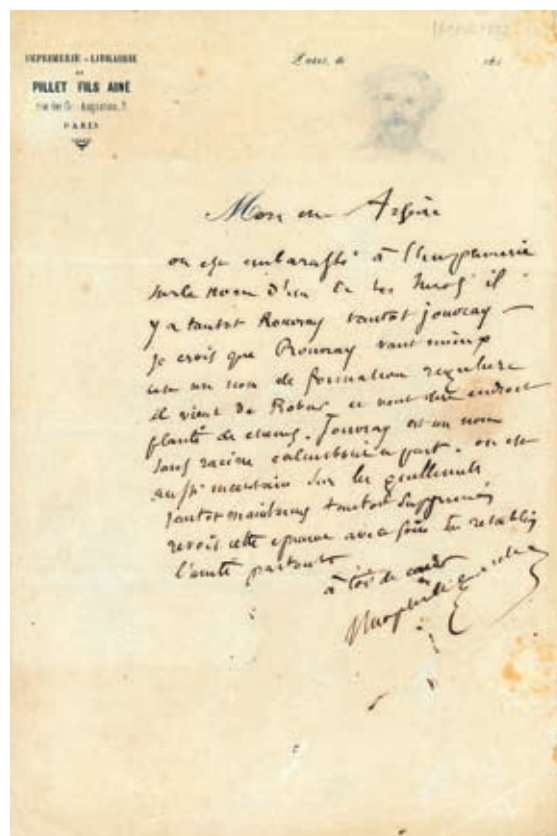 IMPRIMERIE - LIBRAIRIE
DE
PILLET FILS AINÉ
rue des Gds Augustins, 5
PARIS
Paris, le 186
Mon cher Arsène
on est embarassé à l'imprimerie
sur le nom d'un de tes heros il
y a tantot Rouvray tantot jouvray —
je crois que Rouvray vaut mieux
est un nom de formation reguliere
il vient de Robur et veut dire endroit
planté de chenes. Jouvray est un nom
sans racine calembour a part. on est
aussi incertain sur les guillemets
tantot maintenus tantot supprimés
revois cette epreuve avec soin tu retablis
l'unité partout
à toi de coeur
Theophile Gautier